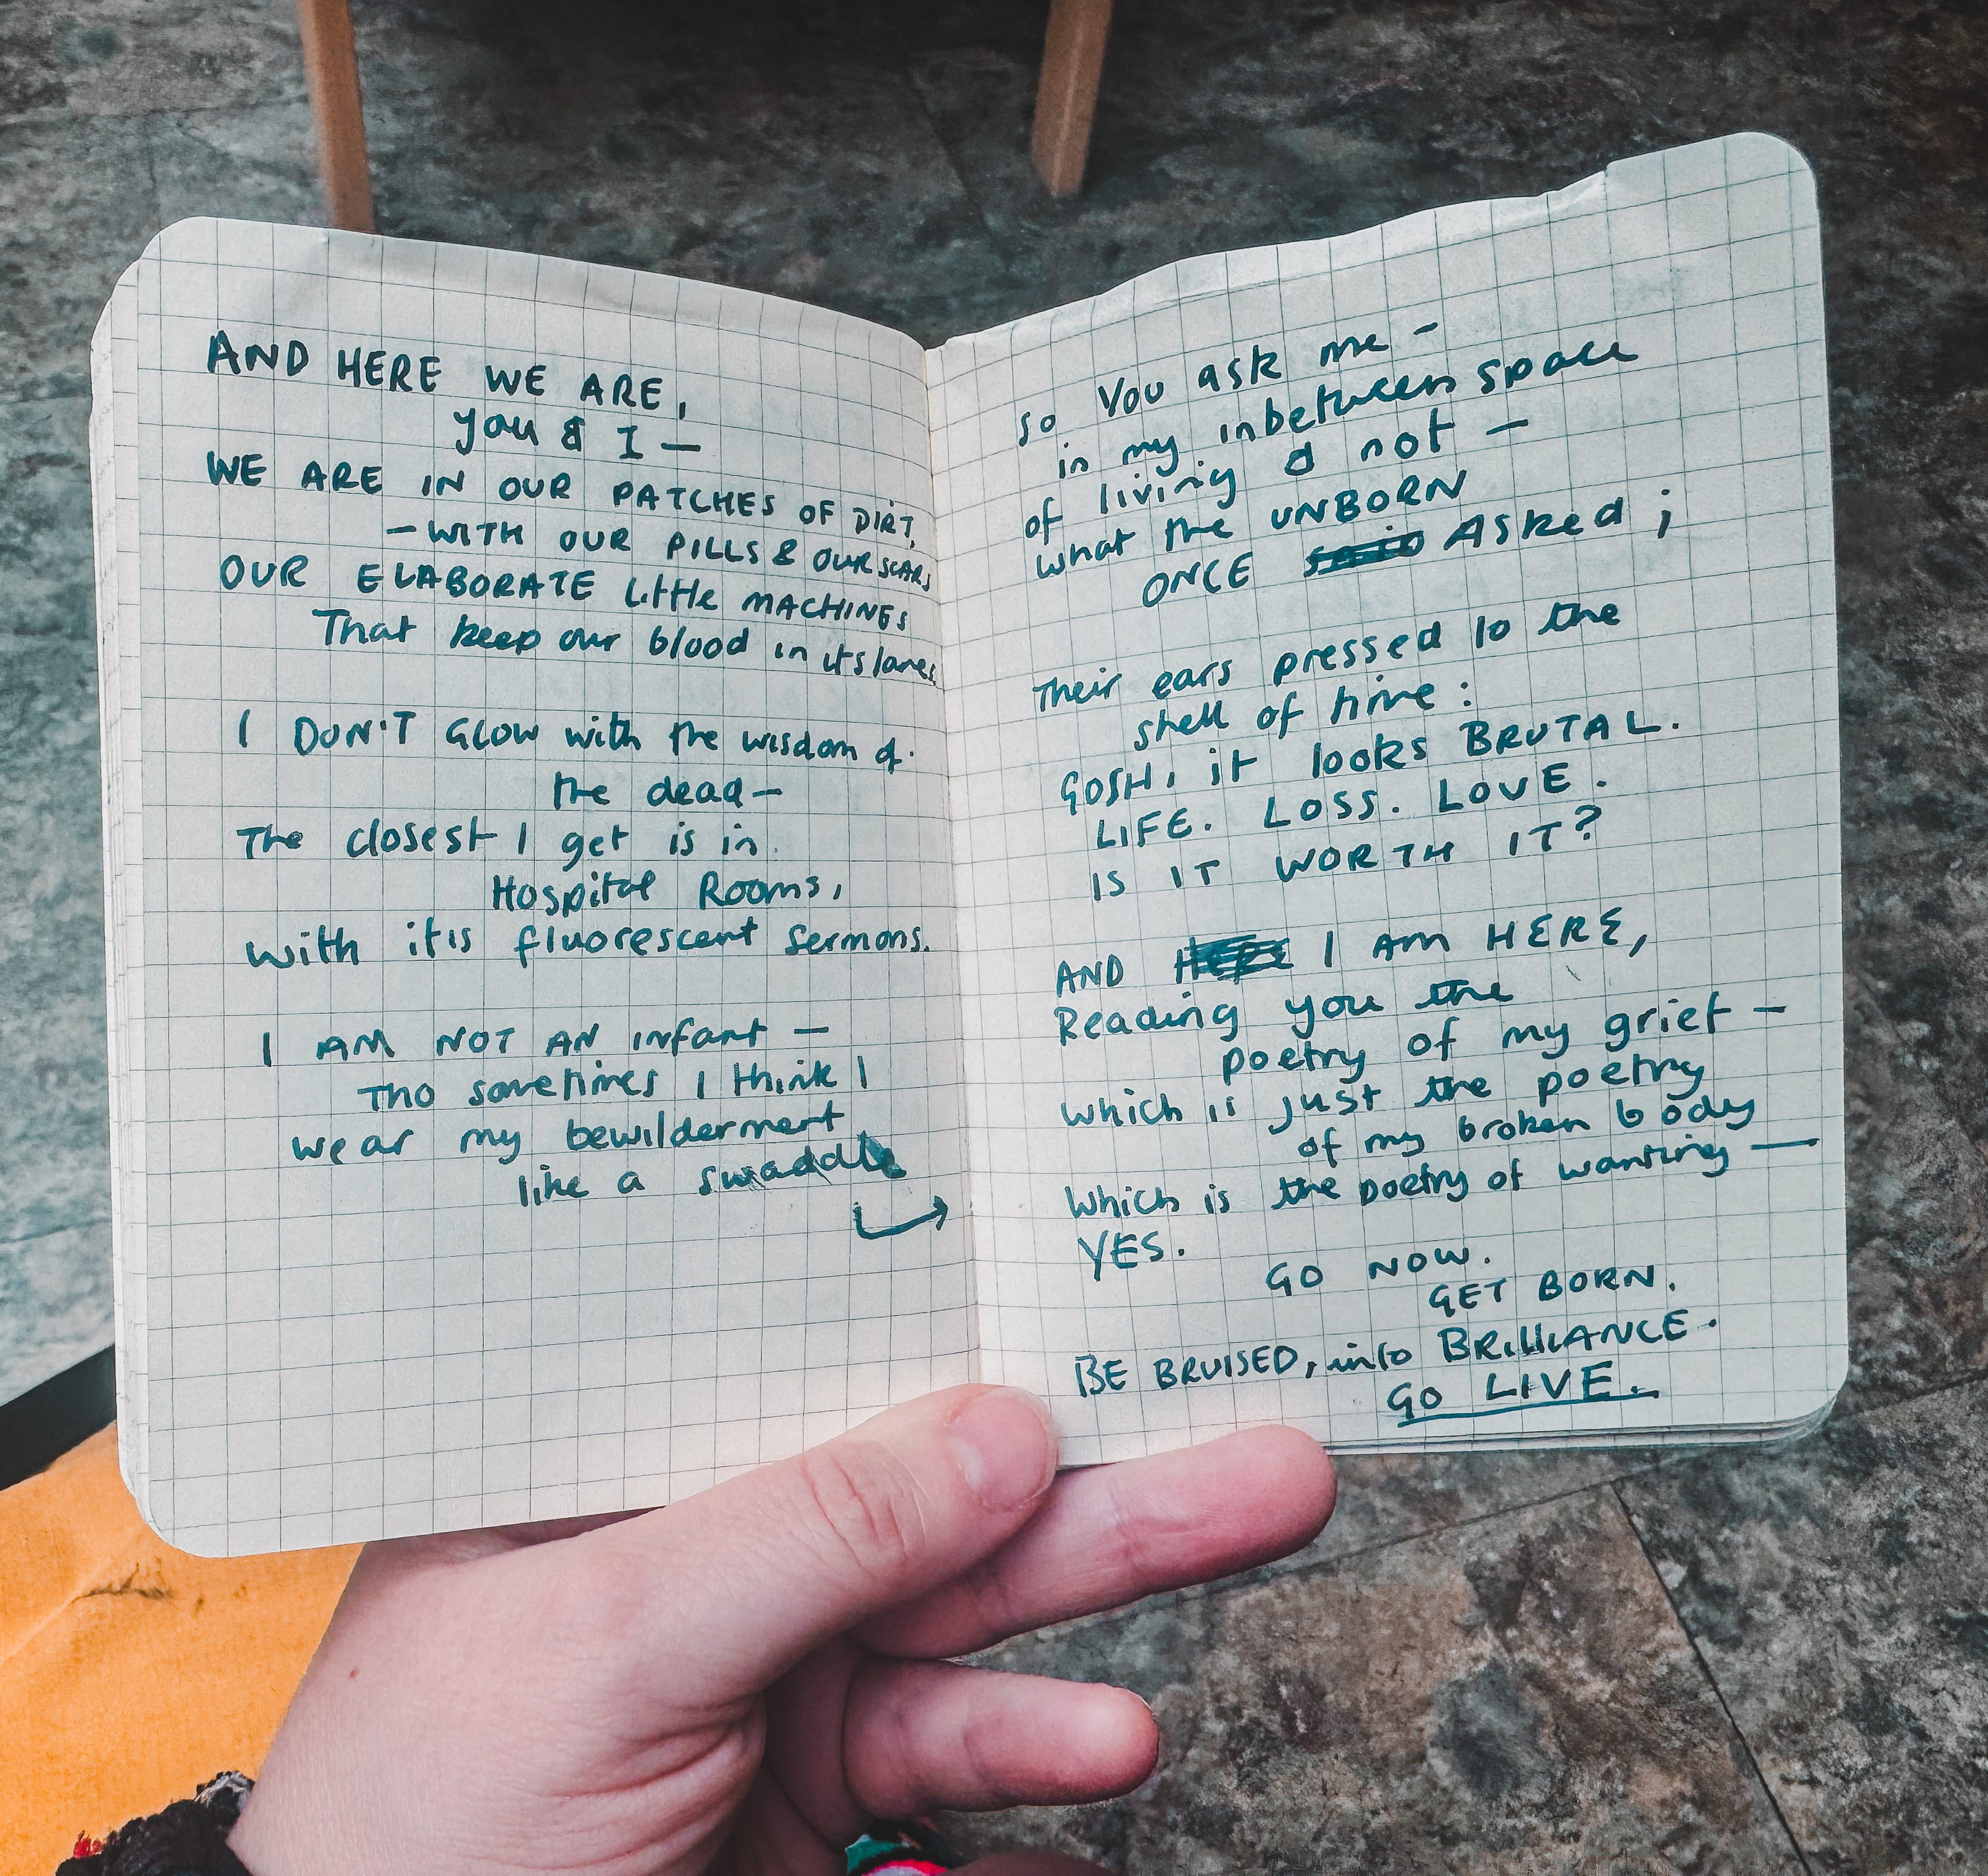 AND HERE WE ARE,
you & I —
WE ARE IN OUR PATCHES OF DIRT,
— WITH OUR PILLS & OUR SCARS
OUR ELABORATE Little MACHINES
That keep our blood in its lanes.
I DON'T GLOW with the wisdom of
the dead —
The closest I get is in
Hospital Rooms,
with it's fluorescent sermons.
I AM NOT AN infant —
THO sometimes I think I
wear my bewilderment
like a swaddle
so You ask me -
in my inbetween space
of living & not -
what the UNBORN
ONCE said Asked ;
Their ears pressed to the
shell of time :
GOSH, it looks BRUTAL.
LIFE. LOSS. LOVE.
IS IT WORTH IT?
AND Here I AM HERE,
Reading you the
poetry of my grief -
which is just the poetry
of my broken body
Which is the poetry of wanting —
YES.
GO NOW.
GET BORN.
BE BRUISED, into BRILLIANCE.
GO LIVE.